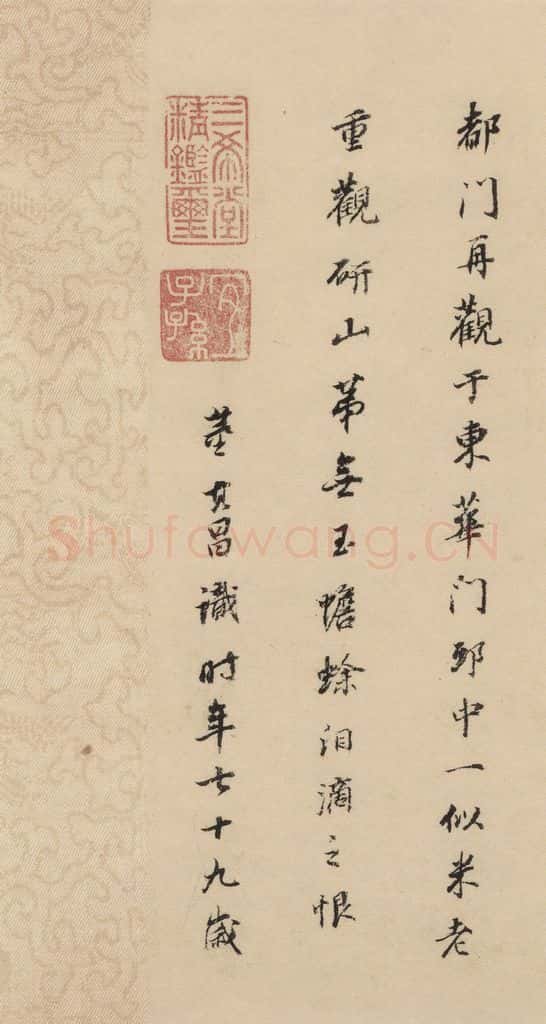 都門再觀于東華門邸中一似米老
重觀研山第無玉蟾蜍泪滴之恨
董其昌識時年七十九歲
三希堂精鑑璽
宜子孫
Shufawang.CN